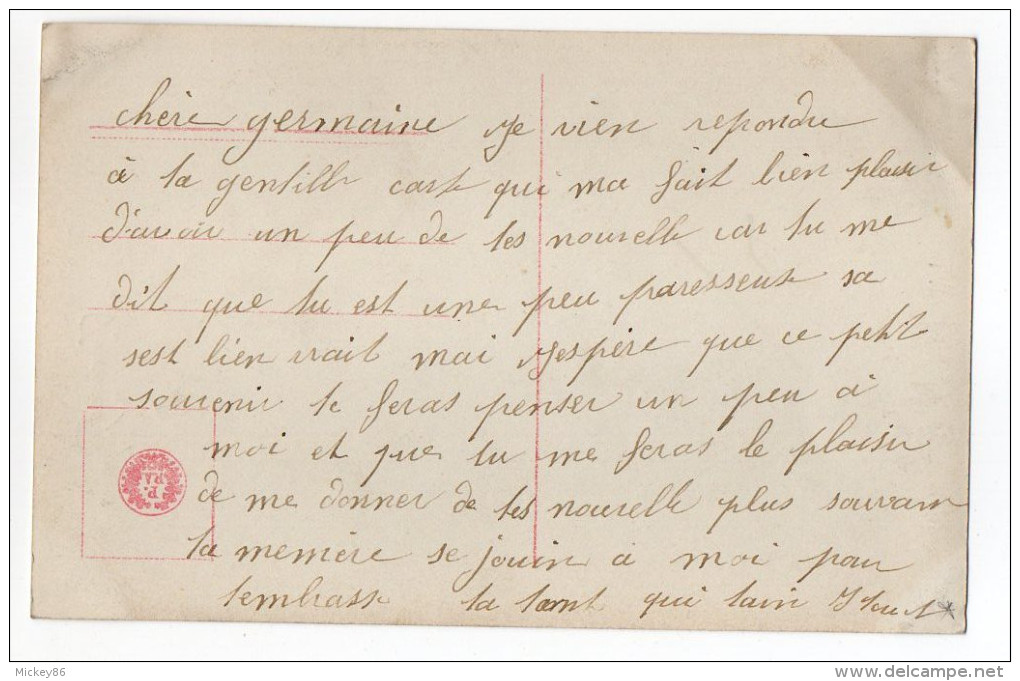 chère germaine je vien repondre
à ta gentille carte qui ma fait bien plaisir
d'avoir un peu de tes nouvelle car tu me
dit que tu est une peu paresseuse sa
sest bien vrait mai jespère que ce petit
souvenir te feras penser un peu à
moi et que tu me feras le plaisir
de me donner de tes nouvelle plus souvant
ta memère se jouin à moi pour
tembrasse ta tant qui taim
Mickey86
delcampe.net